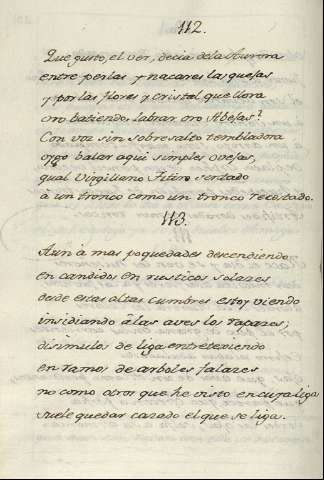 112.
Que gusto, el ver, decia de la Aurora
entre perlas y nacares las quejas
y por las flores y cristal que llora
oro batiendo labrar oro Abejas?
Con voz sin sobresalto tembladora
oygo balar aqui simples Ovejas,
qual Virgiliano Titiro sentado
à un tronco como un tronco recostado.
113.
Aun à mas poquedades descendiendo
en candidos en rusticos solares
desde estas altas cumbres estoy viendo
insidiando â las aves los
disimulos de liga entretexiendo
en ramos de arboles falares
no como otros que he visto en cuya liga
suele quedar cazado el que se liga.